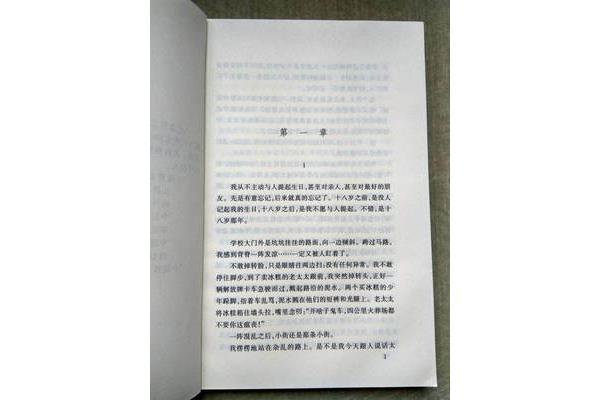 第一章
1
我从不主动与人提起生日，甚至对亲人，甚至对最好的朋
友。先是有意忘记，后来就真的忘记了。十八岁之前，是没人
记起我的生日，十八岁之后，是我不愿与人提起。不错，是十
八岁那年。
学校大门外是坑坑挂挂的路面，向一边倾斜。跨过马路，
我感到背脊一阵发凉……定又被人盯着了。
不敢掉转脸，只是眼睛往两边扫：没有任何异常。我不敢
停住脚步，到了卖冰糕的老太太跟前，我突然掉转头，正好一
辆解放牌卡车急驶而过，溅起路沿的泥水。两个买冰糕的少
年跺脚，指着车乱骂，泥水溅在他们的短裤和光腿上。老太太
将冰糕箱往墙头拉，嘴里念叨：“开啥子鬼车，四公里火葬场都
不要你这瘟丧！”
一阵混乱之后，小街还是那条小街。
我愣愣地站在杂乱的路上。是不是我今天跟人说话太
1